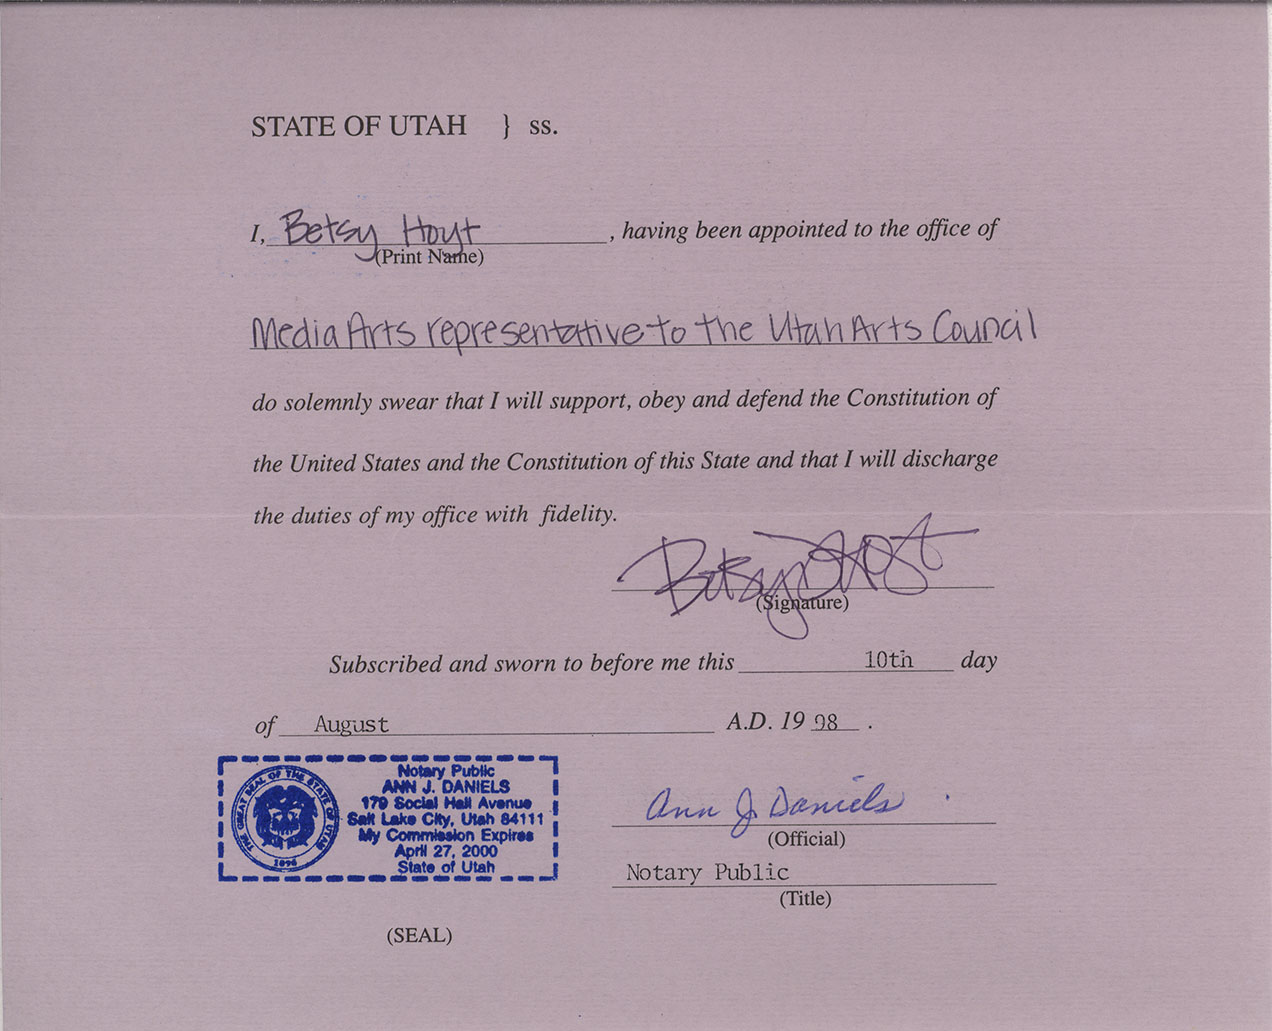 STATE OF UTAH } ss.
I, Betsy Hoyt, having been appointed to the office of
(Print Name)
Media Arts representative to the Utah Arts Council
do solemnly swear that I will support, obey and defend the Constitution of
the United States and the Constitution of this State and that I will discharge
the duties of my office with fidelity.
Betsy Hoyt
(Signature)
Subscribed and sworn to before me this 10th day
of August A.D. 19 98 .
Notary Public
ANN J. DANIELS
179 Social Hall Avenue
Salt Lake City, Utah 84111
My Commission Expires
April 27, 2000
State of Utah
THE GREAT SEAL OF THE STATE OF UTAH
1896
Ann J Daniels
(Official)
Notary Public
(Title)
(SEAL)